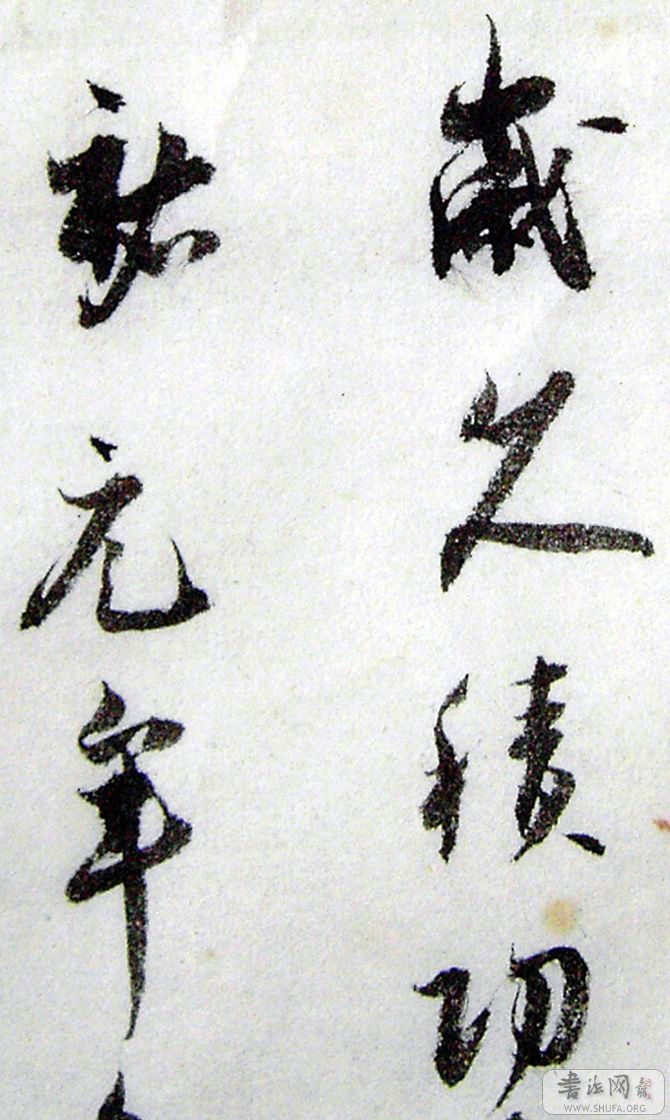 歲久積功
祐元年
書法网
WWW.SHUFA.ORG